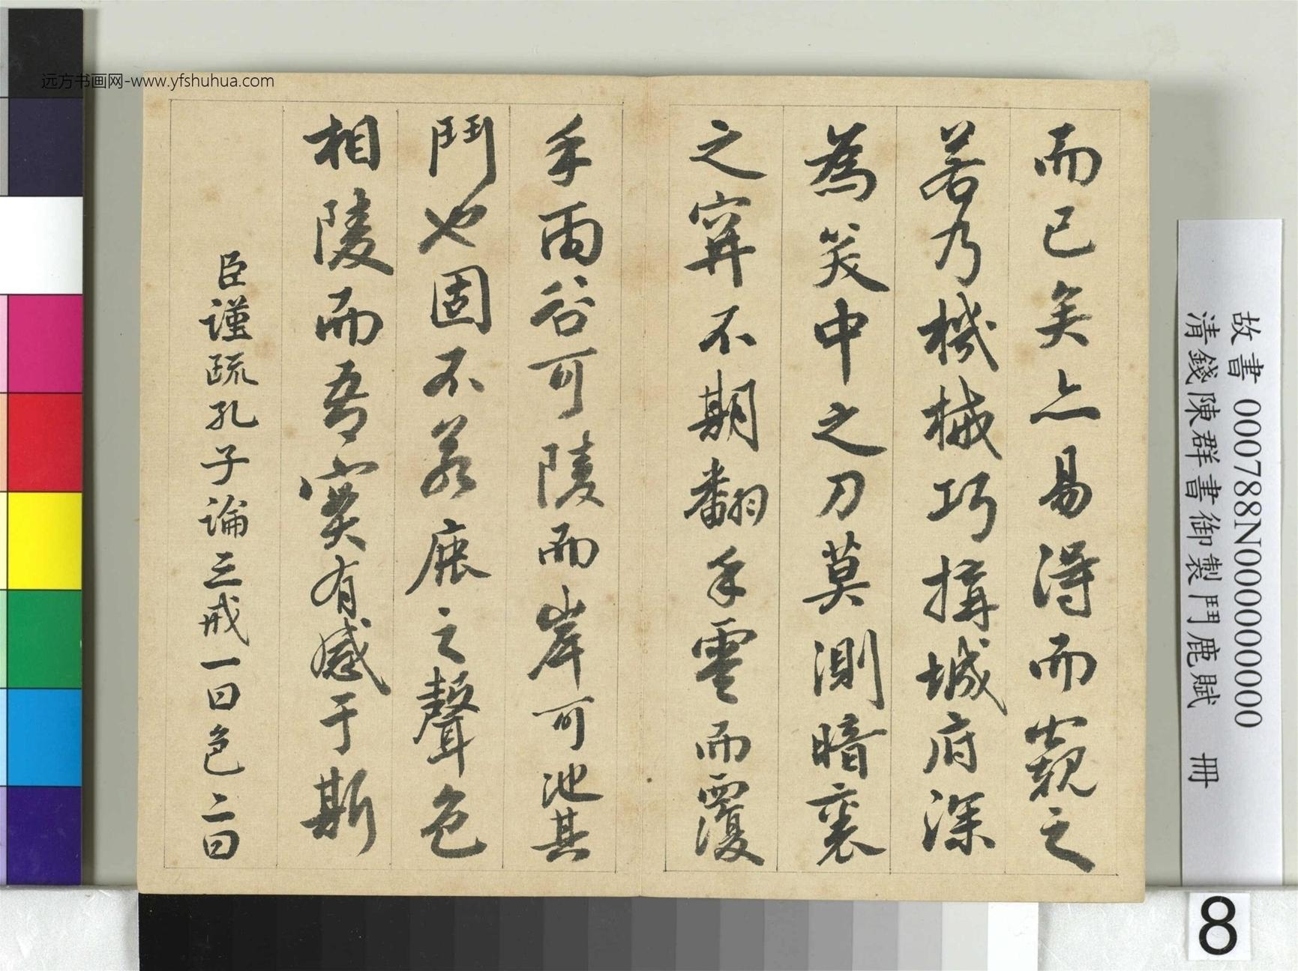 而已矣亦易得而窺之
若乃機械巧搆城府深
為笑中之刀莫測暗裏
之穽不期翻手雲而覆
手雨谷可陵而岸可池其
鬥也固不若鹿之聲色
相陵而吾實有感于斯
臣謹疏孔子論三戒一曰色二曰
故書 000788N000000000
清錢陳群書御製鬥鹿賦 冊
8
远方书画网-www.yfshuhua.com